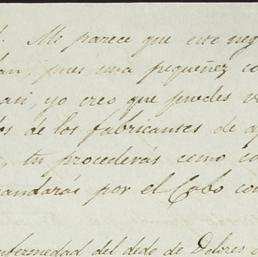 . Me parece que ese neg
lan, pues una pequeñez co
ari, yo creo que puedes v
os de los fabricantes de a
, tu procederás como co
andarás por el Cabo con
nfermedad del dedo de Dolores